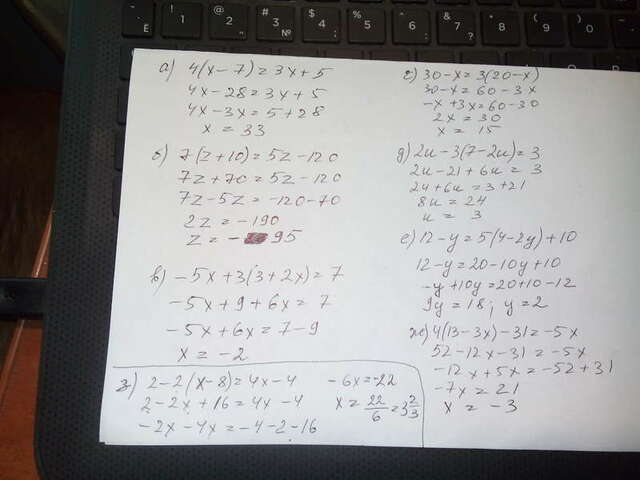 а) 4(x-7)=3x+5
4x-28=3x+5
4x-3x=5+28
x=33
б) 7(z+10)=5z-120
7z+70=5z-120
7z-5z=-120-70
2z=-190
z=-95
в) -5x+3(3+2x)=7
-5x+9+6x=7
-5x+6x=7-9
x=-2
г) 30-x=3(20-x)
30-x=60-3x
-x+3x=60-30
2x=30
x=15
д) 2u-3(7-2u)=3
2u-21+6u=3
2u+6u=3+21
8u=24
u=3
е) 12-y=5(4-2y)+10
12-y=20-10y+10
-y+10y=20+10-12
9y=18; y=2
ж) 4(13-3x)-31=-5x
52-12x-31=-5x
-12x+5x=-52+31
-7x=21
x=-3
з) 2-2(x-8)=4x-4
2-2x+16=4x-4
-2x-4x=-4-2-16
-6x=-22
x=22/6=3 2/3